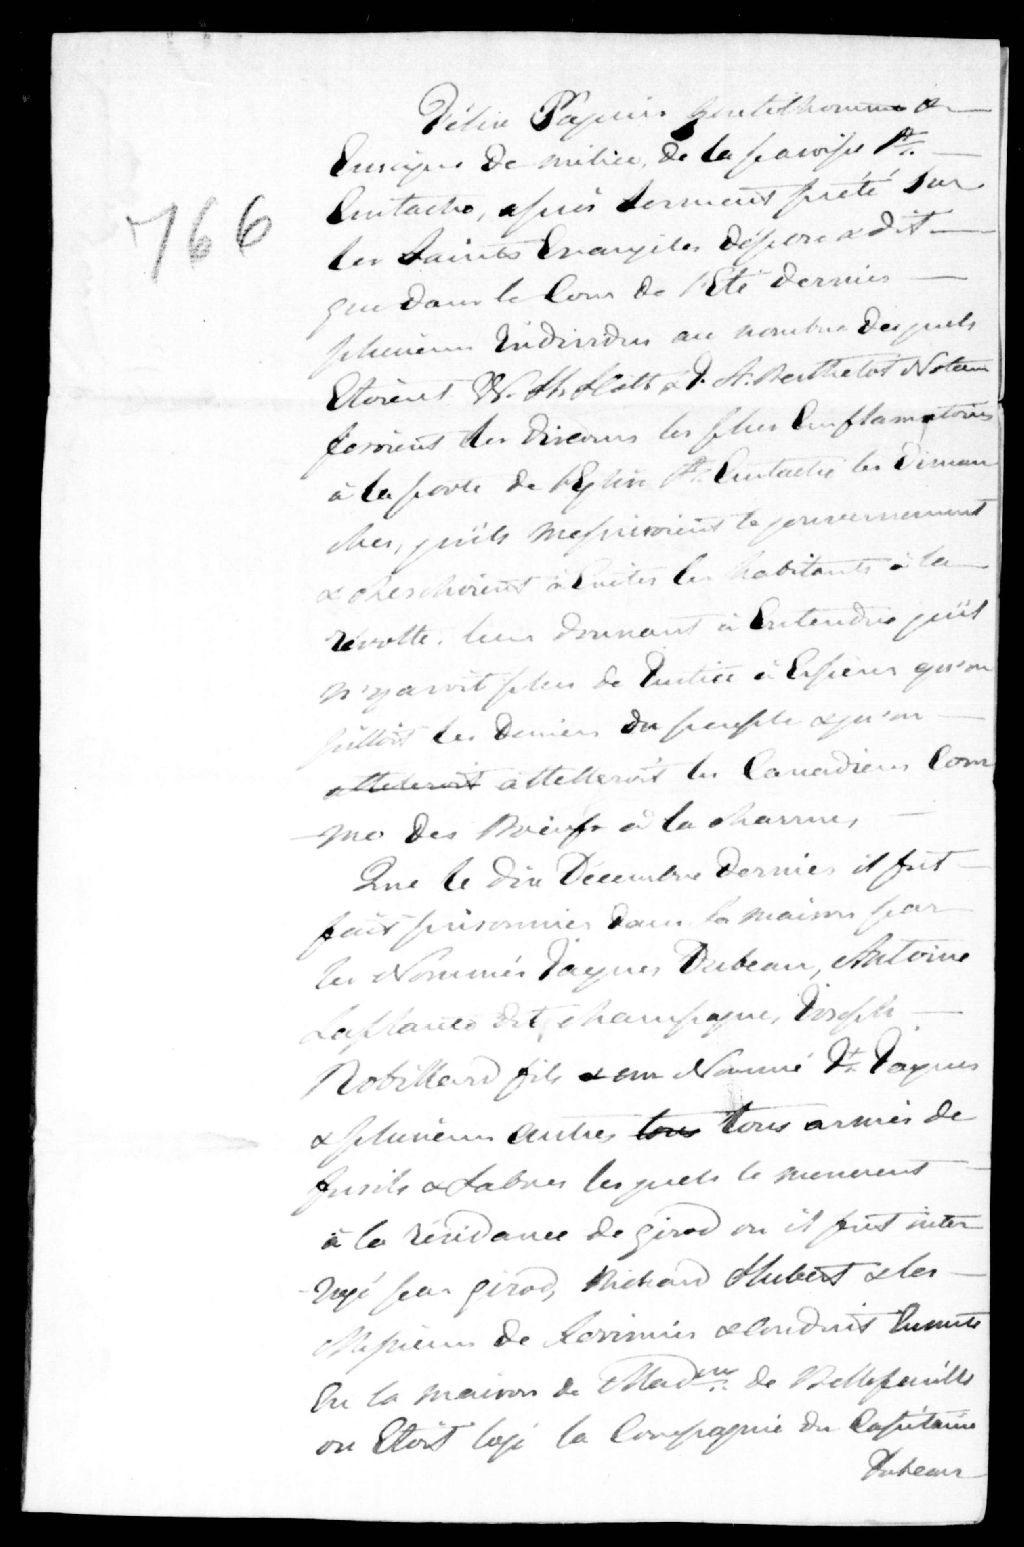 766
Félix Paquin gentilhomme &
Enseigne de milice, de la paroisse St.
Eustache, après serment prêté sur
les Saints Evangiles dépose & dit
que dans le Cour de l'Eté dernier
plusieurs individus au nombre desquels
Etoient W. H. Scott & J. A. Berthelot Notaire
fesoient des discours les plus Enflamatoires
à la porte de l'Eglise St. Eustache les diman
ches, qu'ils meprisoient le gouvernement
& cherchoient à Exiter les habitants à la
révolte. leur donnant à Entendre qu'il
n'y avoit plus de Justice à Espérer qu'on
pilloit les deniers du peuple & qu'on
attelleroit attelleroit les Canadiens Com
me des Boeufs à la charrue,
Que le dix Décembre dernier il fut
fait prisonnier dans sa maison par
les Nommés Jaques Dubeau, Antoine
Laplante dit Champagne, Joseph
Robillard fils & un Nommé St. Jaques
& plusieurs autres tous tous armés de
fusils & sabres lesquels le menerent
à la résidance de girod ou il fut inter
rogé par girod, Richard Hubert & les
Messieurs de Lorimier & conduit Ensuite
En la maison de Madme. de Bellefeuille
ou Etoit logé la Compagnie du Capitaine
Dubeau